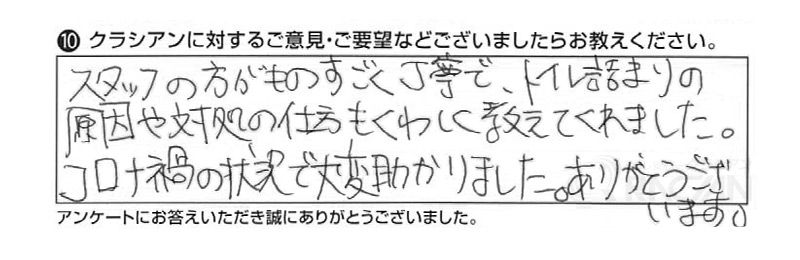 ⑩ クラシアンに対するご意見・ご要望などございましたらお教えください。
スタッフの方がものすごく丁寧で、トイレ詰まりの
原因や対処の仕方もくわしく教えてくれました。
コロナ禍の状況で大変助かりました。ありがとうござ
います。
アンケートにお答えいただき誠にありがとうございました。